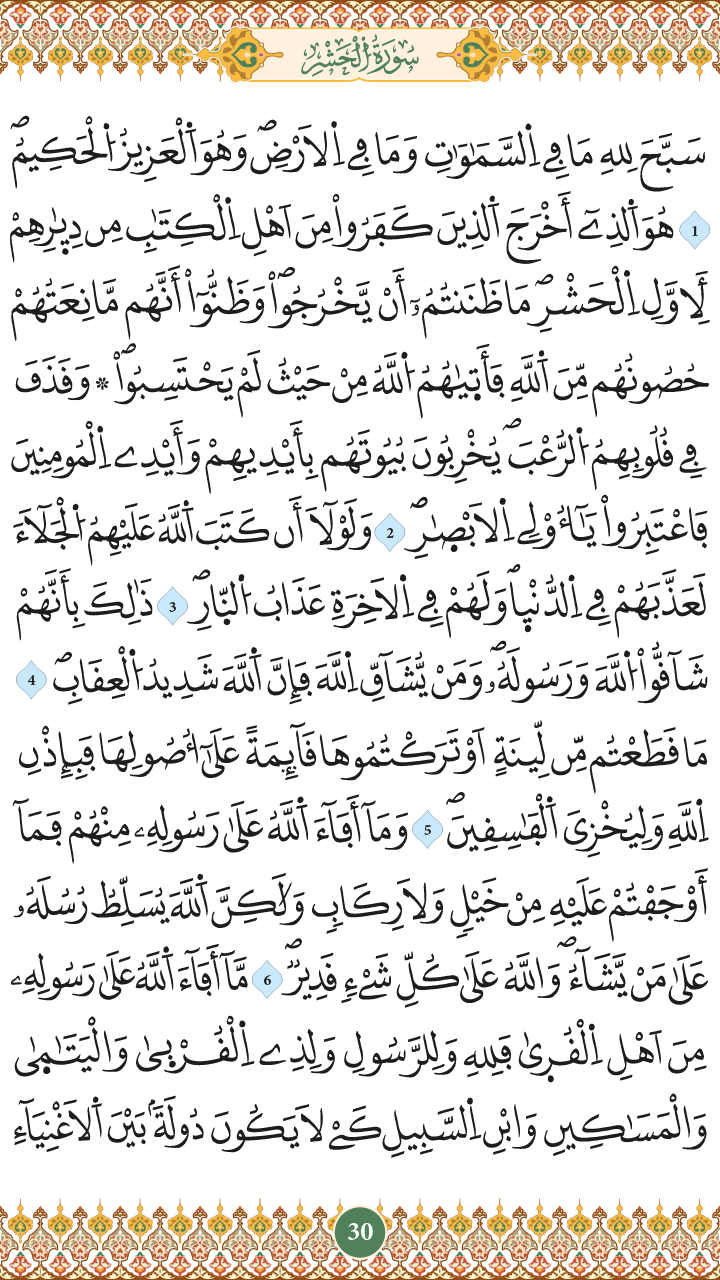 سُورَةُ الْحَشْرِ
سَبَّحَ لِلهِ مَا فِے اِ۬لسَّمَٰوَٰتِ وَمَا فِے اِ۬لَارْضِۖ وَهُوَ اَ۬لْعَزِيزُ اُ۬لْحَكِيمُۖ
1 هُوَ اَ۬لذِےٓ أَخْرَجَ اَ۬لذِينَ كَفَرُواْ مِنَ اَهْلِ اِ۬لْكِتَٰبِ مِن دِيٰ۪رِهِمْ
لِأَوَّلِ اِ۬لْحَشْرِۖ مَا ظَنَنتُمُۥٓ أَنْ يَّخْرُجُواْۖ وَظَنُّوٓاْ أَنَّهُم مَّانِعَتُهُمْ
حُصُونُهُم مِّنَ اَ۬للَّهِ فَأَت۪يٰهُمُ اُ۬للَّهُ مِنْ حَيْثُ لَمْ يَحْتَسِبُواْۖ * وَقَذَفَ
فِے قُلُوبِهِمُ اُ۬لرُّعْبَۖ يُخْرِبُونَ بُيُوتَهُم بِأَيْدِيهِمْ وَأَيْدِے اِ۬لْمُومِنِينَ
فَاعْتَبِرُواْ يَٰٓأُوْلِے اِ۬لَابْصٰ۪رِۖ 2 وَلَوْلَآ أَن كَتَبَ اَ۬للَّهُ عَلَيْهِمُ اُ۬لْجَلَآءَ
لَعَذَّبَهُمْ فِے اِ۬لدُّنْي۪اۖ وَلَهُمْ فِے اِ۬لَاخِرَةِ عَذَابُ اُ۬لنّ۪ارِۖ 3 ذَٰلِكَ بِأَنَّهُمْ
شَآقُّواْ اُ۬للَّهَ وَرَسُولَهُۥۖ وَمَنْ يُّشَآقِّ اِ۬للَّهَ فَإِنَّ اَ۬للَّهَ شَدِيدُ اُ۬لْعِقَابِۖ 4
مَا قَطَعْتُم مِّن لِّينَةٍ اَوْ تَرَكْتُمُوهَا قَآئِمَةً عَلَيٰٓ أُصُولِهَا فَبِإِذْنِ
اِ۬للَّهِ وَلِيُخْزِيَ اَ۬لْفَٰسِقِينَۖ 5 وَمَآ أَفَآءَ اَ۬للَّهُ عَلَيٰ رَسُولِهِۦ مِنْهُمْ فَمَآ
أَوْجَفْتُمْ عَلَيْهِ مِنْ خَيْلٖ وَلَا رِكَابٖ وَلَٰكِنَّ اَ۬للَّهَ يُسَلِّطُ رُسُلَهُۥ
عَلَيٰ مَنْ يَّشَآءُۖ وَاللَّهُ عَلَيٰ كُلِّ شَےْءٖ قَدِيرٌۖ 6 مَّآ أَفَآءَ اَ۬للَّهُ عَلَيٰ رَسُولِهِۦ
مِنَ اَهْلِ اِ۬لْقُر۪يٰ فَلِلهِ وَلِلرَّسُولِ وَلِذِے اِ۬لْقُرْب۪يٰ وَالْيَتَٰم۪يٰ
وَالْمَسَٰكِينِ وَابْنِ اِ۬لسَّبِيلِ كَےْ لَا يَكُونَ دُولَةَۢ بَيْنَ اَ۬لَاغْنِيَآءِ
30